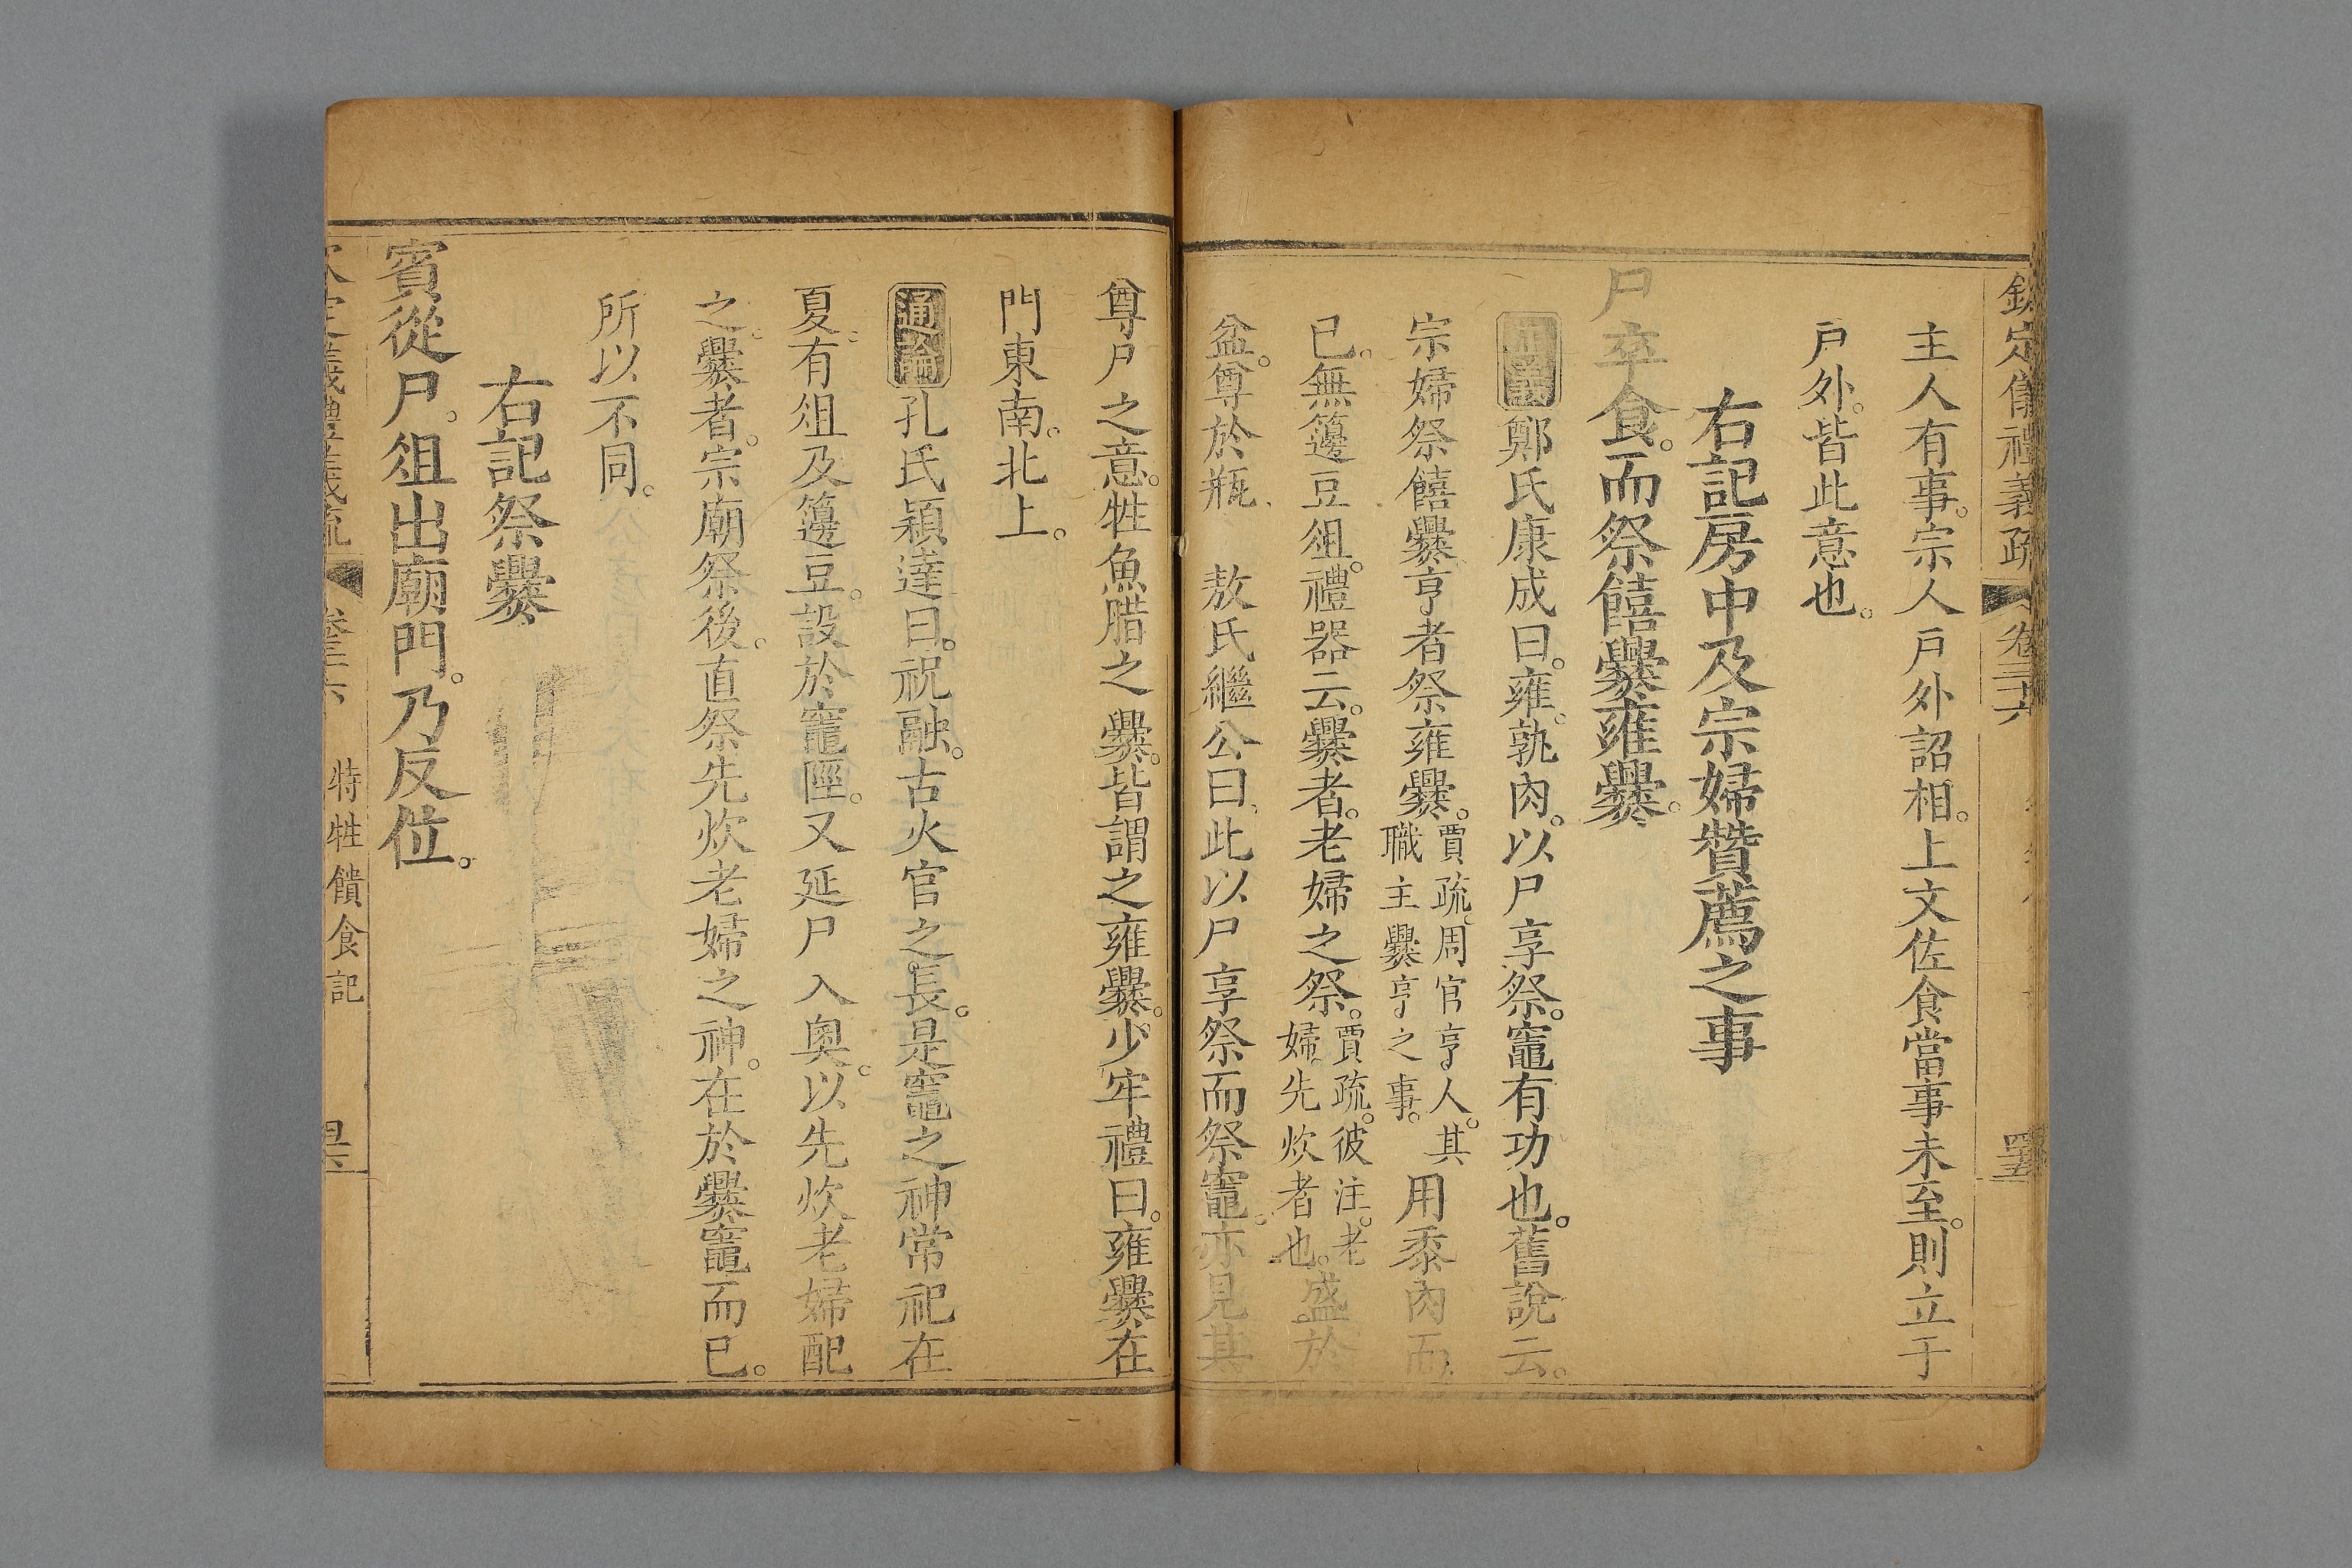 欽定儀禮義疏 卷三十六 四五
主人有事。宗人戶外詔相。上文佐食當事未至。則立于
戶外。皆此意也。
右記房中及宗婦贊薦之事
尸卒食。而祭饎爨雍爨。
正義 鄭氏康成曰。雍。孰肉。以尸享祭。竈有功也。舊說云。
宗婦祭饎爨亨者祭雍爨。賈疏。周官亨人。其職主爨亨之事。用黍肉而
已。無籩豆俎。禮器云。爨者。老婦之祭。賈疏。彼注。老婦。先炊者也。盛於
盆。尊於瓶。 敖氏繼公曰、此以尸享祭而祭竈。亦見其
尊尸之意。牲魚腊之爨。皆謂之雍爨。少牢禮曰。雍爨在
門東南。北上。
通論 孔氏穎達曰。祝融。古火官之長。是竈之神常祀在
夏。有俎及籩豆。設於竈陘。又延尸入奧。以先炊老婦配
之。爨者。宗廟祭後。直祭先炊老婦之神。在於爨竈而已。
所以不同。
右記祭爨
賓從尸。俎出廟門。乃反位。
欽定義禮義疏 卷三十六 特牲饋食記